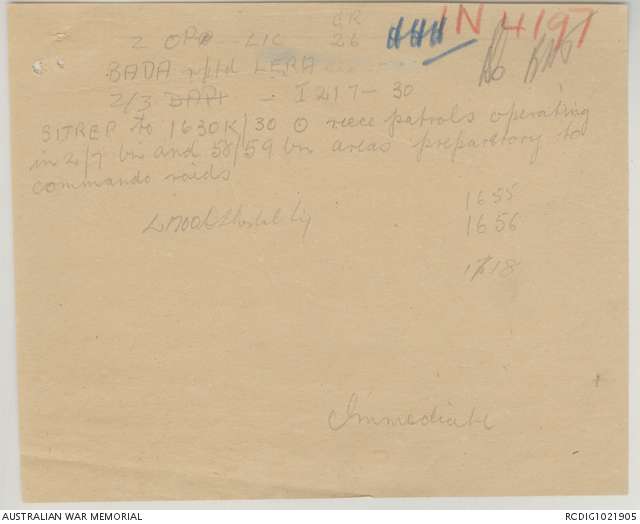 GR IN 4197
Z OPO LIC 26 HHH
BADA rptd LERA
2/3 - I 217 - 30
SITREP to 1630K/30 O recce patrols operating
in 2/7 bn and 58/59 bn areas prepartory to
commando raids
1655
1656
1718
Immediate
AUSTRALIAN WAR MEMORIAL
RCDIG1021905